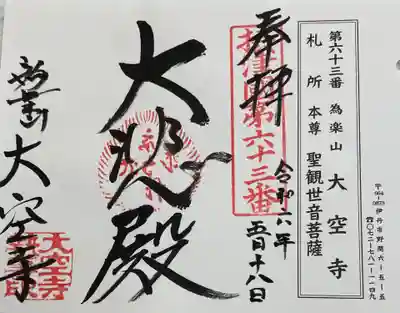 第六十三番 為楽山 大空寺
札所本尊 聖観世音菩薩
〒664-0873 伊丹市野間六-五-五
☎〇七二-七八一-一一四九
奉拝
摂津国第六十三番
令和六年
五月十八日
大悲殿
大空寺